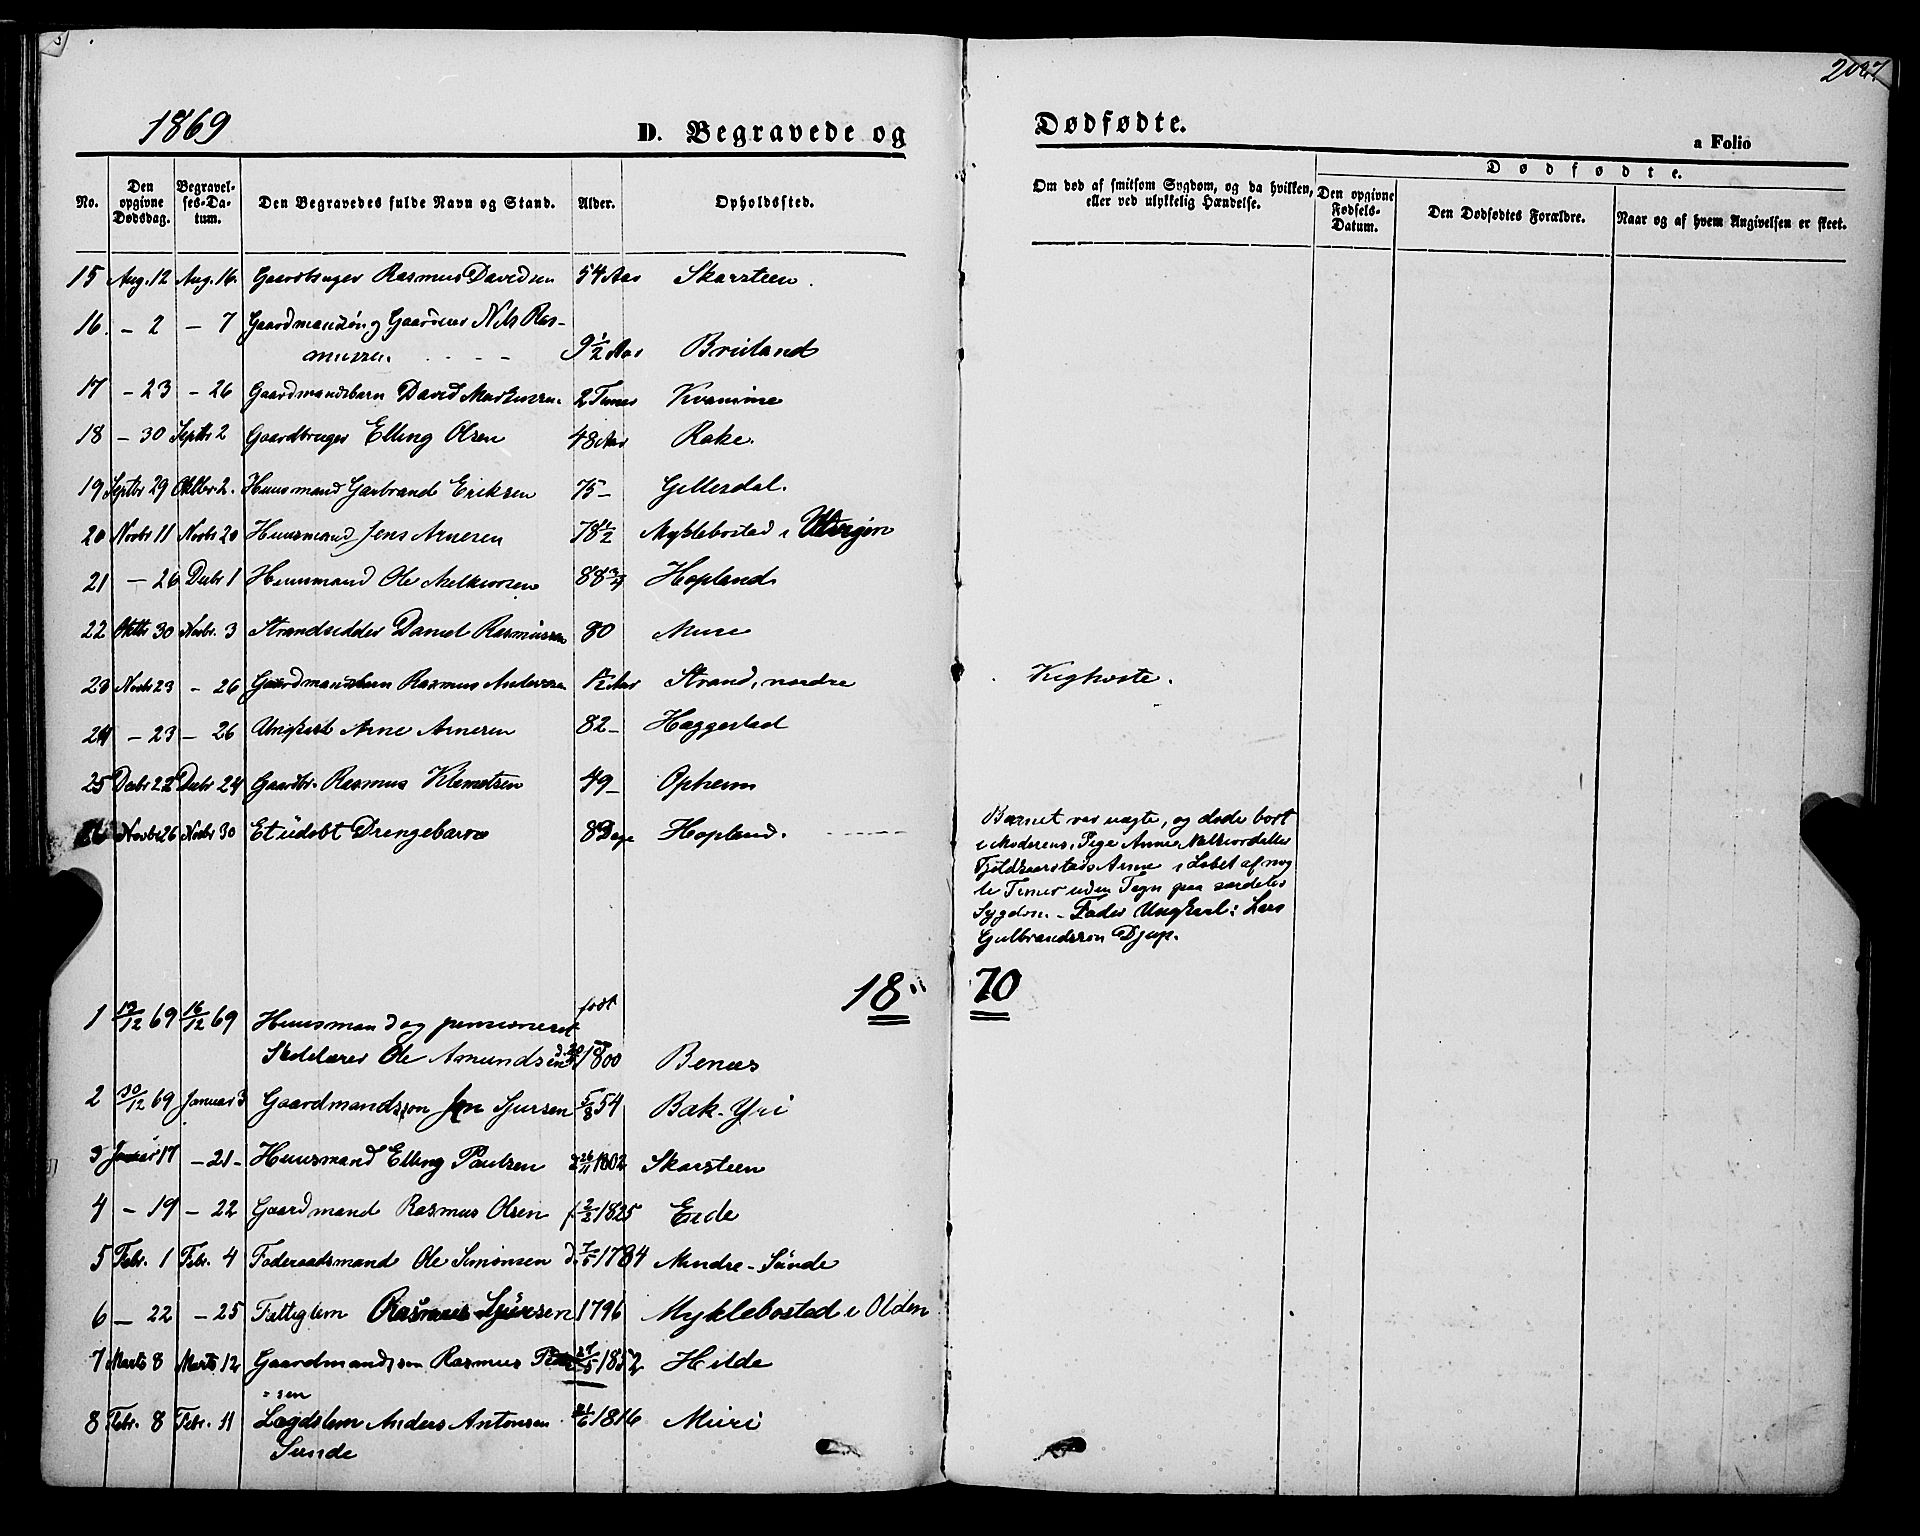 1869
D. Begravede og Dødfødte.
a Folio
No.
Den opgivne Dødsdag.
Begravelses-Datum.
Den Begravedes fulde Navn og Stand.
Alder.
Opholdssted.
Om død af smitsom Sygdom, og da hvilken, eller ved ulykkelig Hændelse.
Dødfødte.
Den opgivne Fødsels-Datum.
Den Dødfødtes Forældre.
Naar og af hvem Angivelsen er skeet.
15 Aug. 12 Aug. 16. Gaardbruger Rasmus Davidsen 54 Aar Skarsteen.
16. – 2 – 7 Gaardmandsøn Nils Ras-
mussen. 9½ Aar Breiland
17 – 23 – 26 Gaardmandsbarn David Markussen. 2 Timer Kvamme
18 – 30 Septbr 2 Gaardbruger Elling Olsen 48 Aar Rake.
19 Septbr 29 Oktbr. 2. Huusmand Garbrand Eriksen 75 – Gillesdal.
20 Novbr 11 Novbr 20 Huusmand Jens Arnesen 78½ Myklebostad i
21 – 26 Decbr 1 Huusmand Ole Melkiorsen 88¾ Hopland
22 Oktbr 30 Novbr. 3 Strandsidder Daniel Rasmussen 80 Mure
23 Novbr 23 – 26 Gaardmandsbarn Rasmus Andersen ½ Aar Strand, nordre Kighoste.
24 – 23 – 26 Ungkarl Arne Arnesen 82 – Hæggestad
25 Decbr 22 Decbr 24 Gaardbr. Rasmus Klemetsen 49 – Opheim
26 Novbr 26 Novbr 30 Et udøbt Drengebarn 8 Dage Hopland.
Barnet var uægte, og døde bort
i Moderens, Pige Anne
Arme i Løbet af nog-
le Timer uden Tegn paa særdeles
Sygdom. – Fader Ungkarl: Lars
Gulbrandssøn Djup.
18 70
1 13/12 69 16/12 69 Huusmand og pensioneret født
Skolelærer Ole Amundsen 1800 Benæs
2 30/12 69 Januar 3 Gaardmandssøn Jon Sjursen 5/8 54 Bak-Yri
3 Januar 17 – 21 – Huusmand Elling Paulsen 26/11 1802 Skarsteen
4 – 19 – 22 Gaardmand Rasmus Olsen f. 2/2 1825 Eide
5 Febr. 1 Febr. 4 Føderaadsmand Ole Simonsen d. 7/5 1784 Mindre-Sunde
6 – 22 – 25 Fattiglem Rasmus Sjursen 1796 Myklebostad i Olden
7 Marts 8 Marts 12 Gaardmandssøn Rasmus 1852 Hilde
"sen
8 Febr. 8 Febr. 11 Lægdslem Anders Antonsen 1816 Muri
Sunde